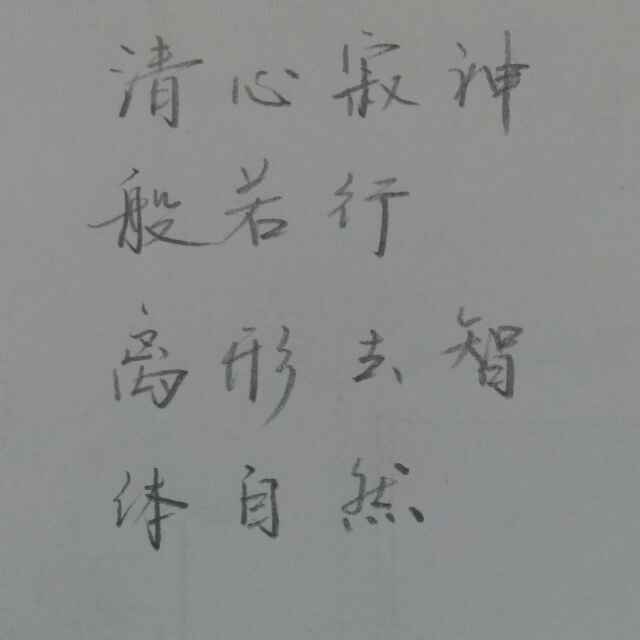 清心寂神
般若行
离形去智
体自然